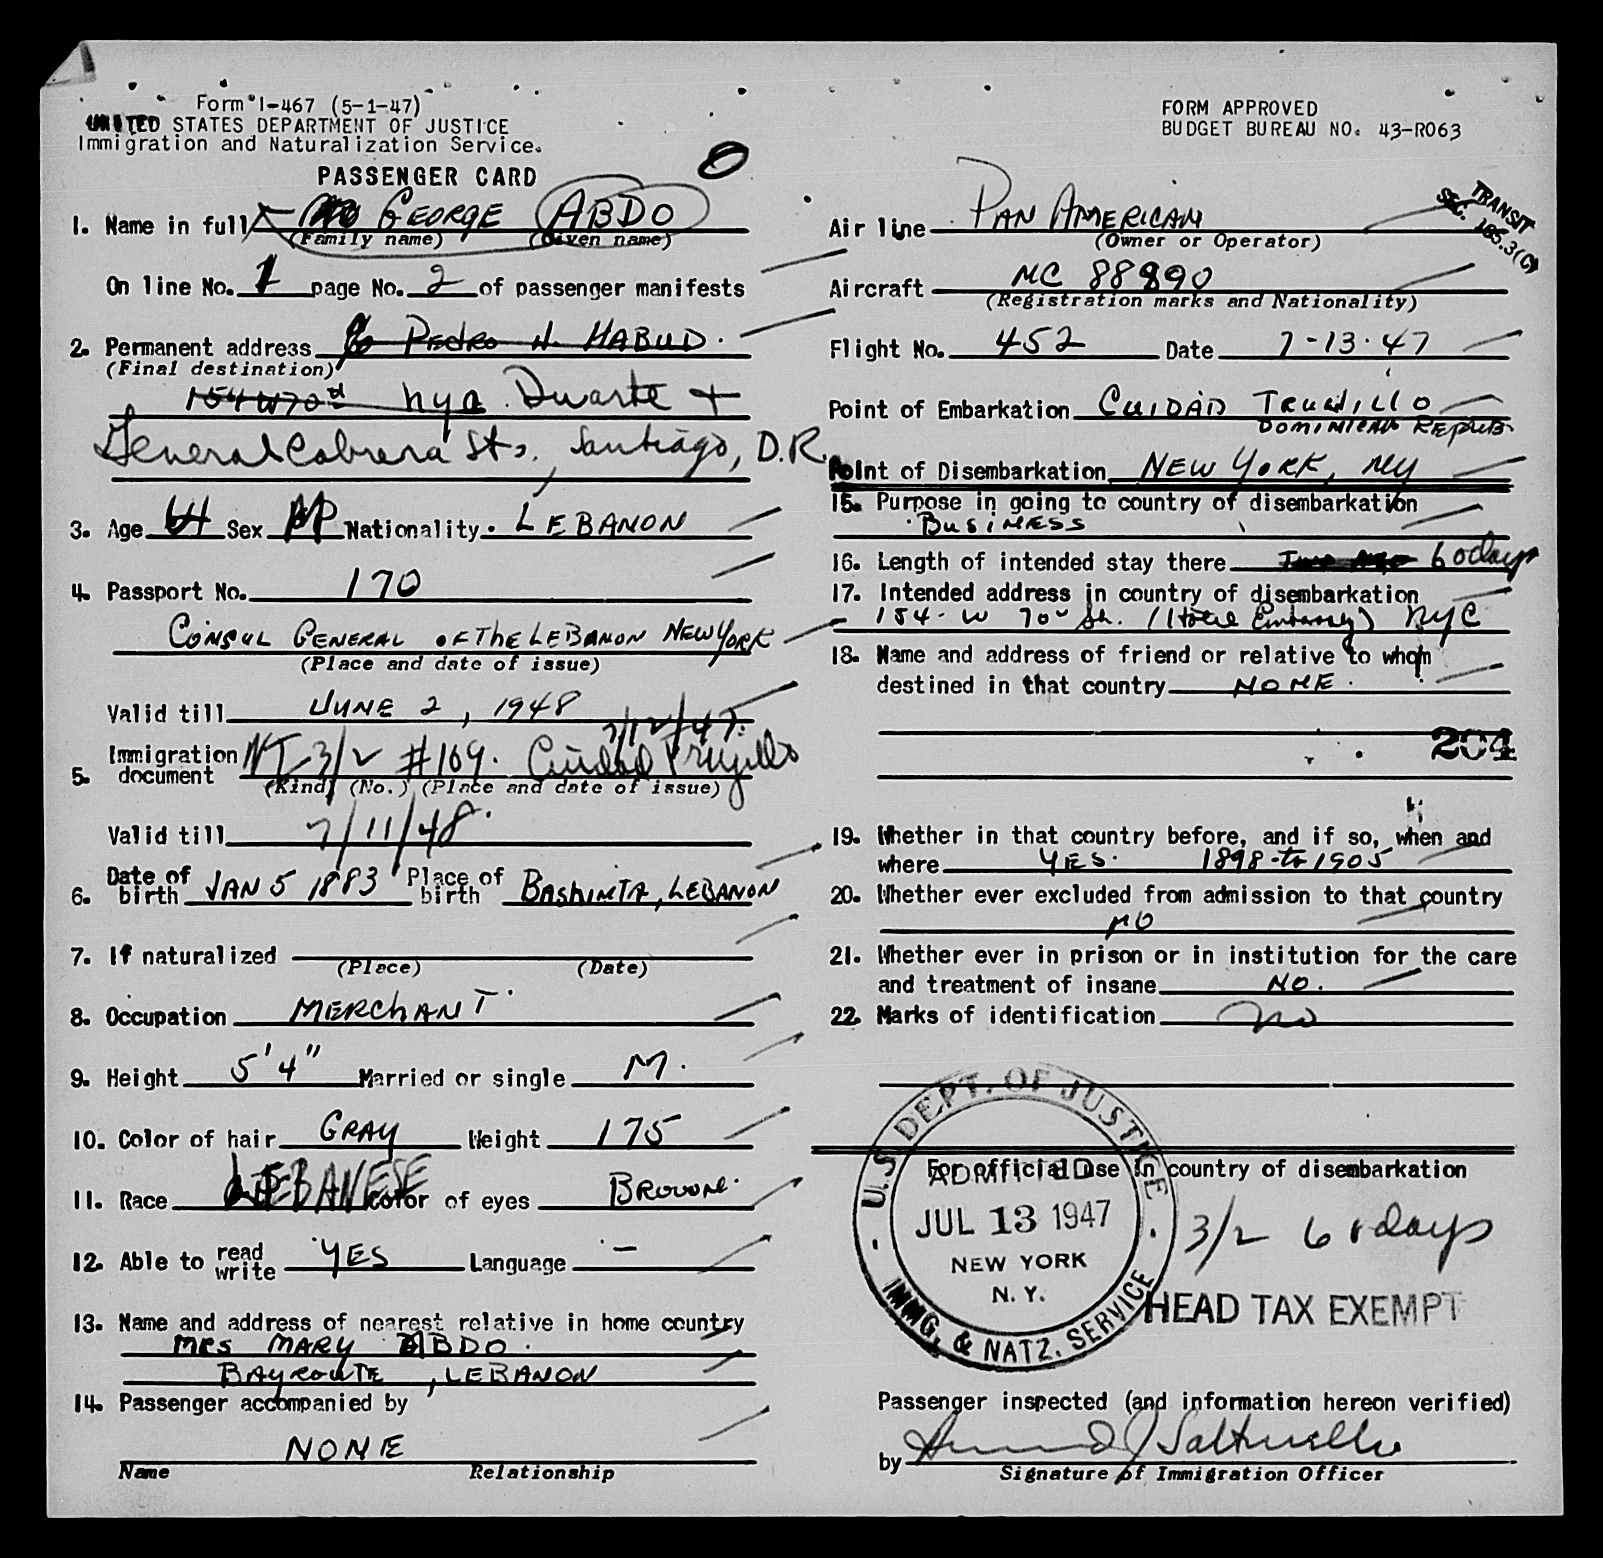 Form I-467 (5-1-47)
UNITED STATES DEPARTMENT OF JUSTICE
Immigration and Naturalization Service.
PASSENGER CARD
1. Name in full GEORGE ABDO
(Family name) (Given name)
On line No. 1 page No. 2 of passenger manifests
2. Permanent address % PEdRo N. HABUD.
(Final destination)
154 W 70 d nya. Duarte +
General Cabrera Sts., Santiago, D.R.
3. Age 64 Sex M Nationality. LEBANON
4. Passport No. 170
CONSUL GENERAL OF THE LEBANON NEW YORK
(Place and date of issue)
Valid till JUNE 2, 1948
7/12/47.
5. Immigration document 3/2 #169. Ciudad Trujillo
(Kind) (No.) (Place and date of issue)
Valid till 7/11/48.
6. Date of birth JAN 5 1883 Place of birth BASKINTA, LEBANON
7. If naturalized
(Place) (Date)
8. Occupation MERChANT
9. Height 5'4" Married or single M.
10. Color of hair GRAY Weight 175
11. Race LEBANESE Color of eyes BROWN.
12. Able to read write YES Language –
13. Name and address of nearest relative in home country
MRS MARY ABDO.
BAYROUTE, LEBANON
14. Passenger accompanied by
NONE
Name Relationship
FORM APPROVED
BUDGET BUREAU NO. 43-R063
TRANSIT
SEC. 165.3(C)
Air line PAN AMERICAN
(Owner or Operator)
Aircraft NC 88890
(Registration marks and Nationality)
Flight No. 452 Date 7-13-47
Point of Embarkation CUIDAD TRUJILLO
DOMINICAN REPUB.
Point of Disembarkation NEW YORK, NY
15. Purpose in going to country of disembarkation
BUSINESS
16. Length of intended stay there 60 days
17. Intended address in country of disembarkation
154 - W 70 St. (Hotel Embassy) NYC
18. Name and address of friend or relative to whom
destined in that country NONE.
204
19. Whether in that country before, and if so, when and
where YES. 1898 - to 1905
20. Whether ever excluded from admission to that country
NO
21. Whether ever in prison or in institution for the care
and treatment of insane NO.
22. Marks of identification no
For official use in country of disembarkation
U.S. DEPT. OF JUSTICE
ADMITTED
JUL 13 1947
NEW YORK
N. Y.
IMMG. & NATZ. SERVICE
3/2 60 days
HEAD TAX EXEMPT
Passenger inspected (and information hereon verified)
by
Signature of Immigration Officer